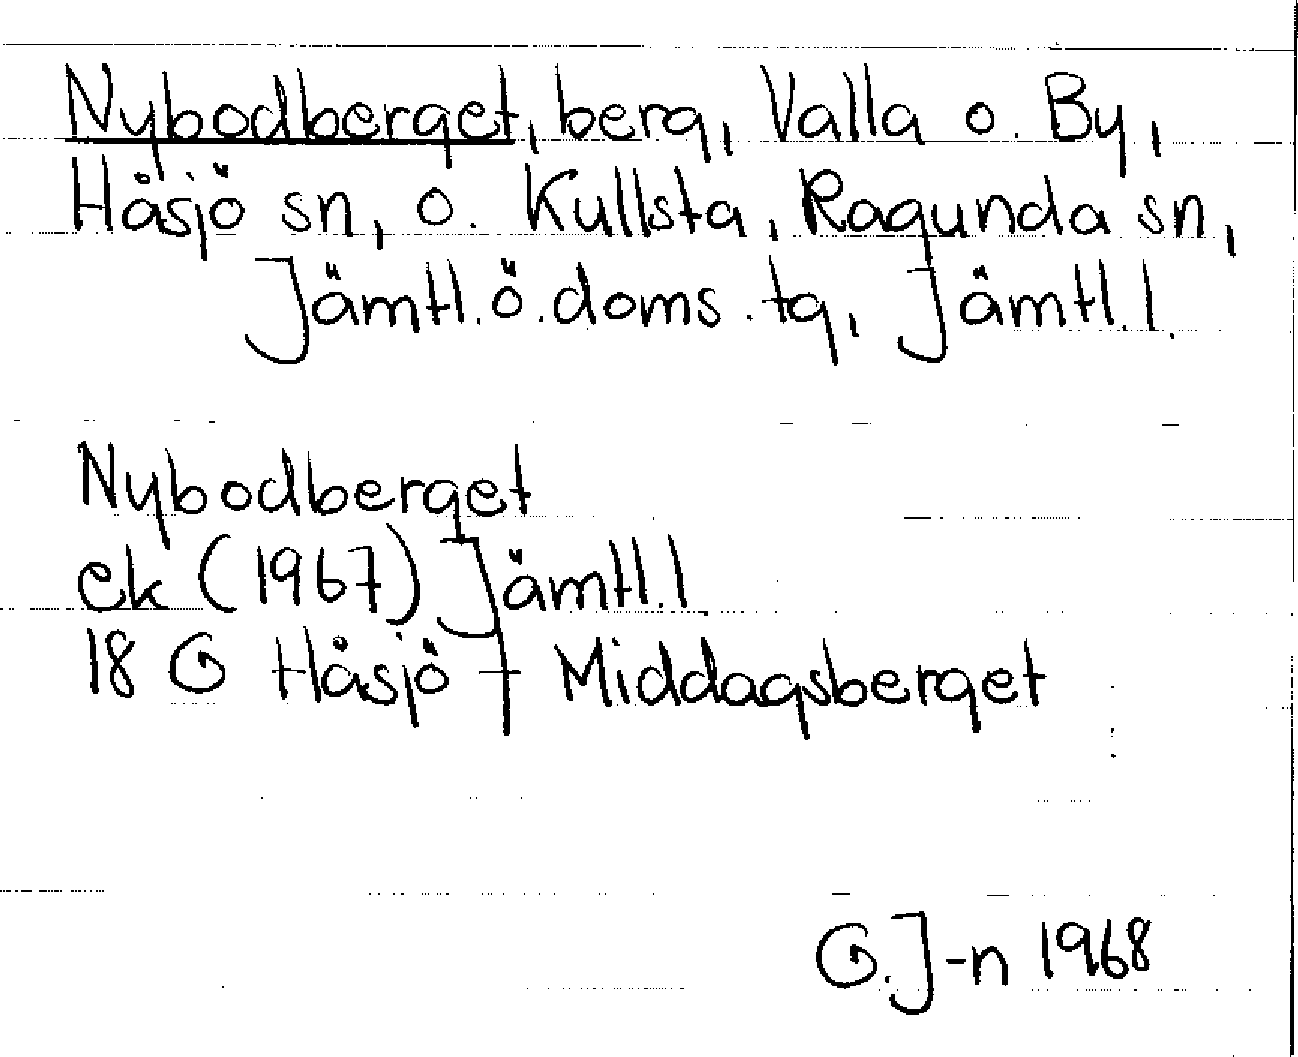 Nybodberget, berg, Valla o. By,
Håsjö sn, o. Kullsta, Ragunda sn,
Jämtl. ö. doms. tg, Jämtl. l.
Nybodberget
ek (1967) Jämtl. l
18 G Håsjö f Middagsberget
G. J-n 1968